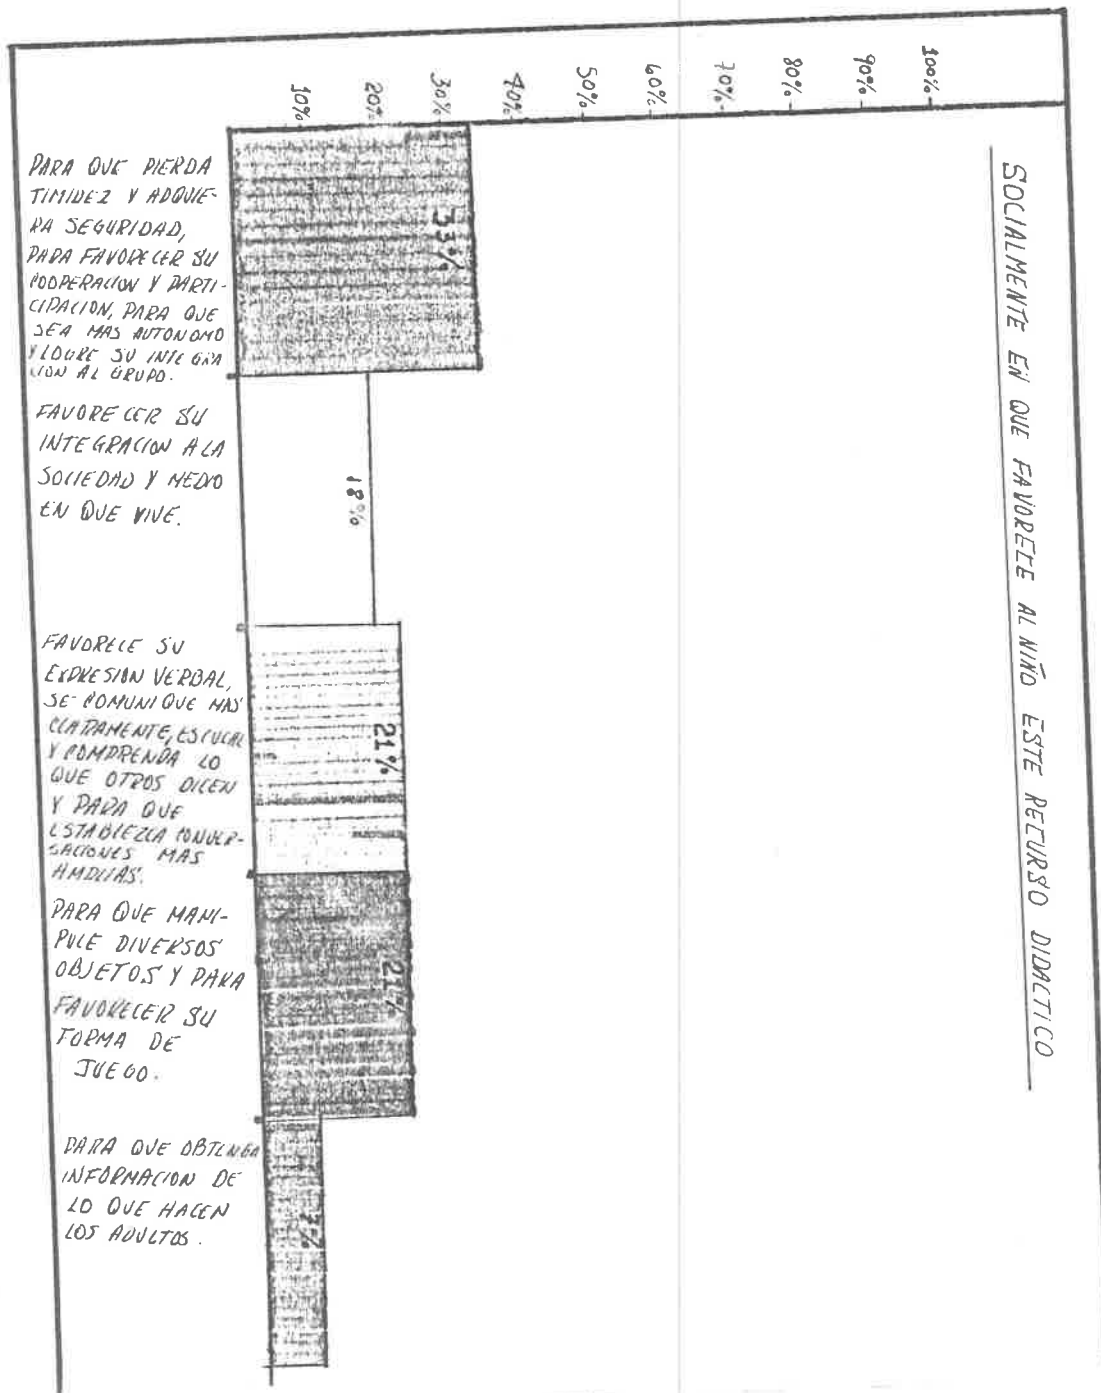 SOCIALMENTE EN QUE FAVORECE AL NIÑO ESTE RECURSO DIDACTICO
100%
90%
80%
70%
60%
50%
40%
30%
20%
10%
33%
18%
21%
21%
7%
PARA QUE PIERDA
TIMIDEZ Y ADQUIE-
RA SEGURIDAD,
PARA FAVORECER SU
COOPERACION Y PARTI-
CIPACION, PARA QUE
SEA MAS AUTONOMO
Y LOGRE SU INTEGRA
CION AL GRUPO.
FAVORECER SU
INTEGRACION A LA
SOCIEDAD Y MEDIO
EN QUE VIVE.
FAVORECE SU
EXPRESION VERBAL,
SE COMUNIQUE MAS
CLARAMENTE, ESCUCHE
Y COMPRENDA LO
QUE OTROS DICEN
Y PARA QUE
ESTABLEZCA CONVER-
SACIONES MAS
AMPLIAS.
PARA QUE MANI-
PULE DIVERSOS
OBJETOS Y PARA
FAVORECER SU
FORMA DE
JUEGO.
PARA QUE OBTENGA
INFORMACION DE
LO QUE HACEN
LOS ADULTOS.